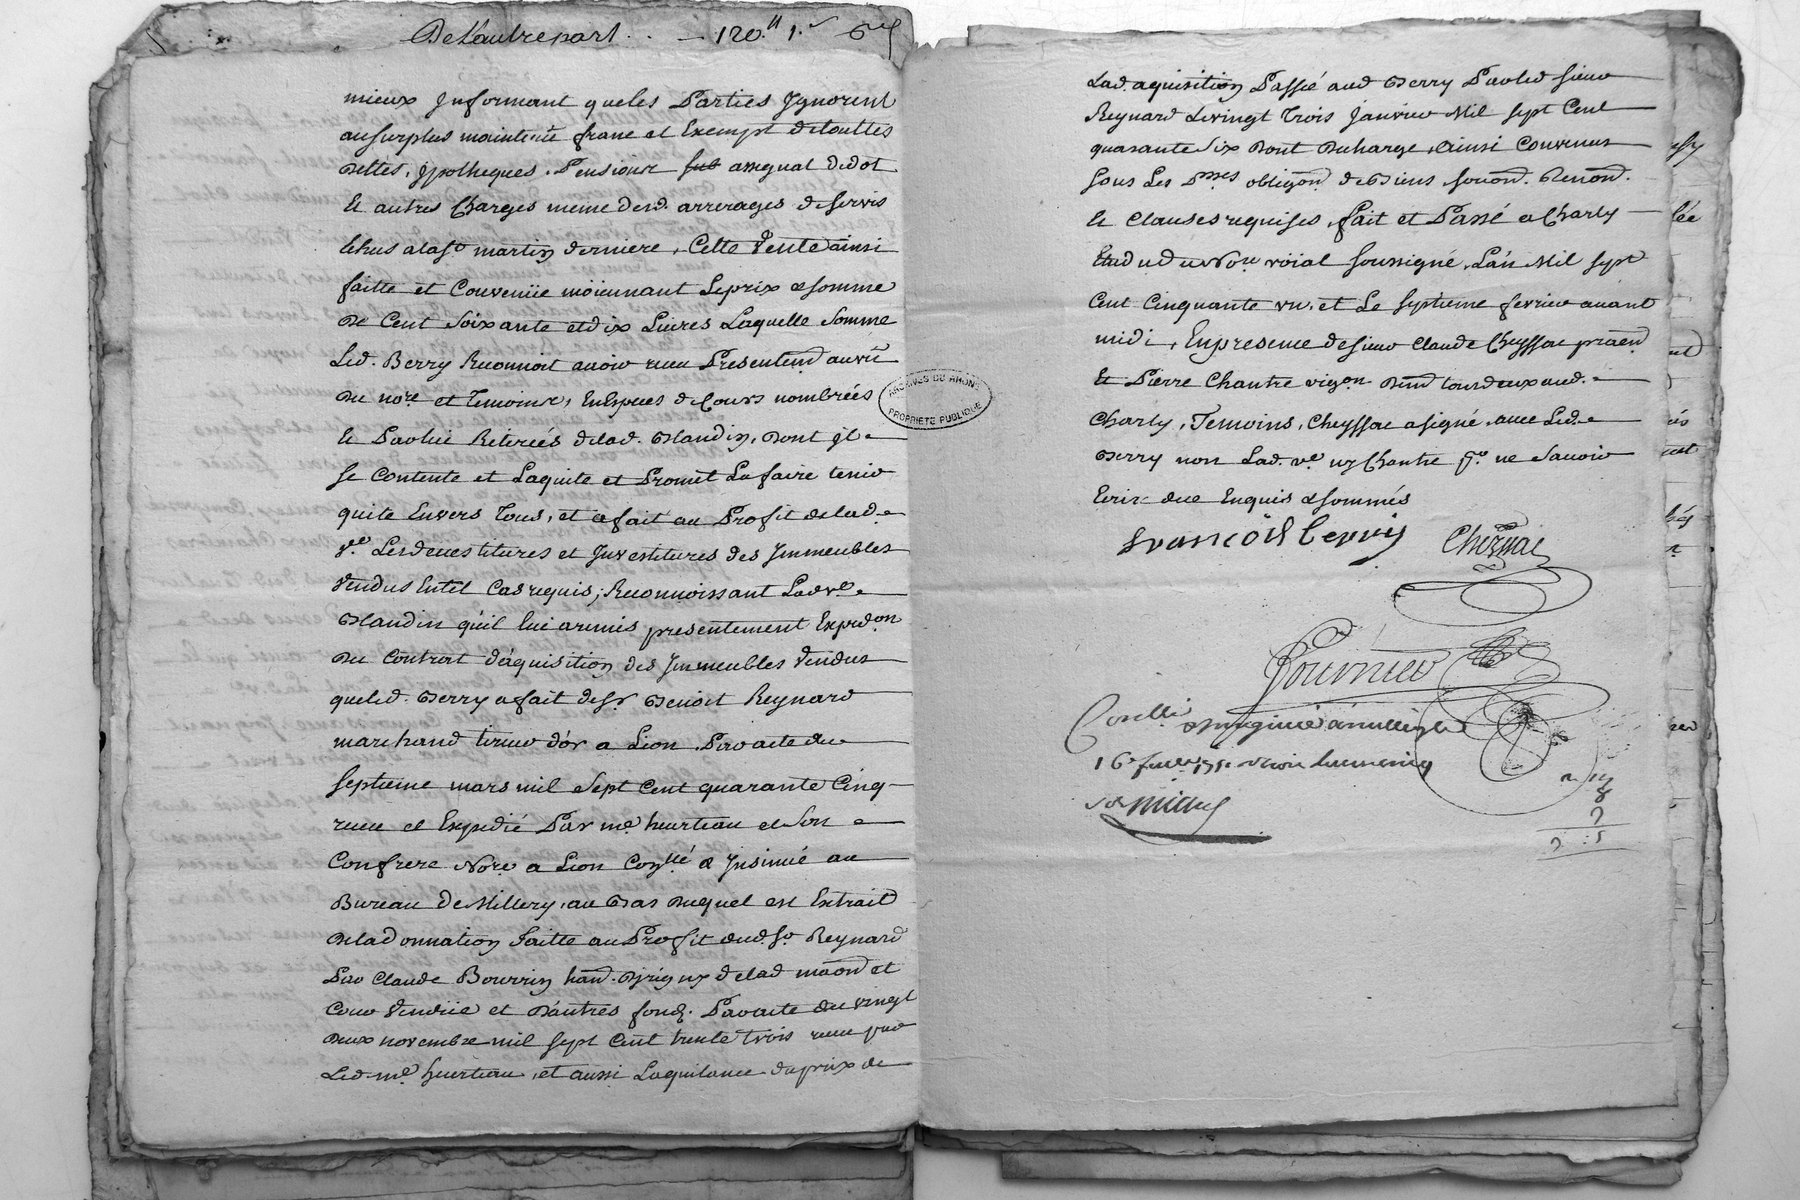 De L'autre part . . — 120.ll 1.s 6d
mieux Informant queles Parties Ignorent
au surplus maintenu franc et Exempt de touttes
Dettes, Ipotheques, Pensions assignat de dot
Et autres Charges meme desd. arrerages de servis
Echus ala st martin derniere, Cette Vente ainsi
faitte et Convenüe moïennant Le prix & somme
De Cent Soixante et dix Livres Laquelle Somme
Led. Berry Reconnoit avoir receu Presentemt au vû
Du nore et temoins, En Especes de Cours nombrées
et Par lui Retirées de lad. Blandin, Dont Il
se Contente et Laquite et Promet La faire tenir
quite Envers Tous, et a fait au Profit de lad.
ve Les devestitures et Investitures des Immeubles
Vendus En tel Cas requis, Reconnoissant Lad ve
Blandin qu'il lui a remis presentement Expedon
Du Contrat d'aquisition des Immeubles Vendus
que led. Berry a fait de sr Benoit Reynard
marchand tireur d'or a Lion Par acte du
septieme mars mil Sept Cent quarante Cinq
receu et Expedié Par me heurteau et Son
Confrere Nore a Lion Conllé & Insinué au
Bureau de Millery, au Bas Duquel est Extrait
De la donnation faitte au Profit dud. sr Reynard
Par Claude Bourrin de lad maon et
Cour Vendüe et D'autres fonds. Par acte du vingt
Deux novembre mil sept Cent trente trois receu par
Led. me heurteau, et aussi La quitance du prix de
Lad. aquisition Passée aud Berry Par led sieur
Reynard Le vingt Trois Janvier Mil sept Cent
quarante Six Dont Decharge, ainsi Convenus
sous Les Pmses obligaon de Biens, soumon. Renon.
et Clauses requises, fait et Passé a Charly
Etude du Nore roïal soussigné, L'an Mil sept
Cent Cinquante un, et Le septieme fevrier avant
midi, En presence de sieur Claude Cheyssac
Et Pierre Chantre vigon Demt tous deux aud.
Charly, Temoins, Cheyssac a signé avec Led.
Berry non Lad. ve ny Chantre Pr ne Savoir
Ecrire de ce Enquis & sommés
francois berry
Fournier
Conllé & insinué a millery le
16e fever 1751
ARCHIVES DU RHÔNE
PROPRIÉTÉ PUBLIQUE